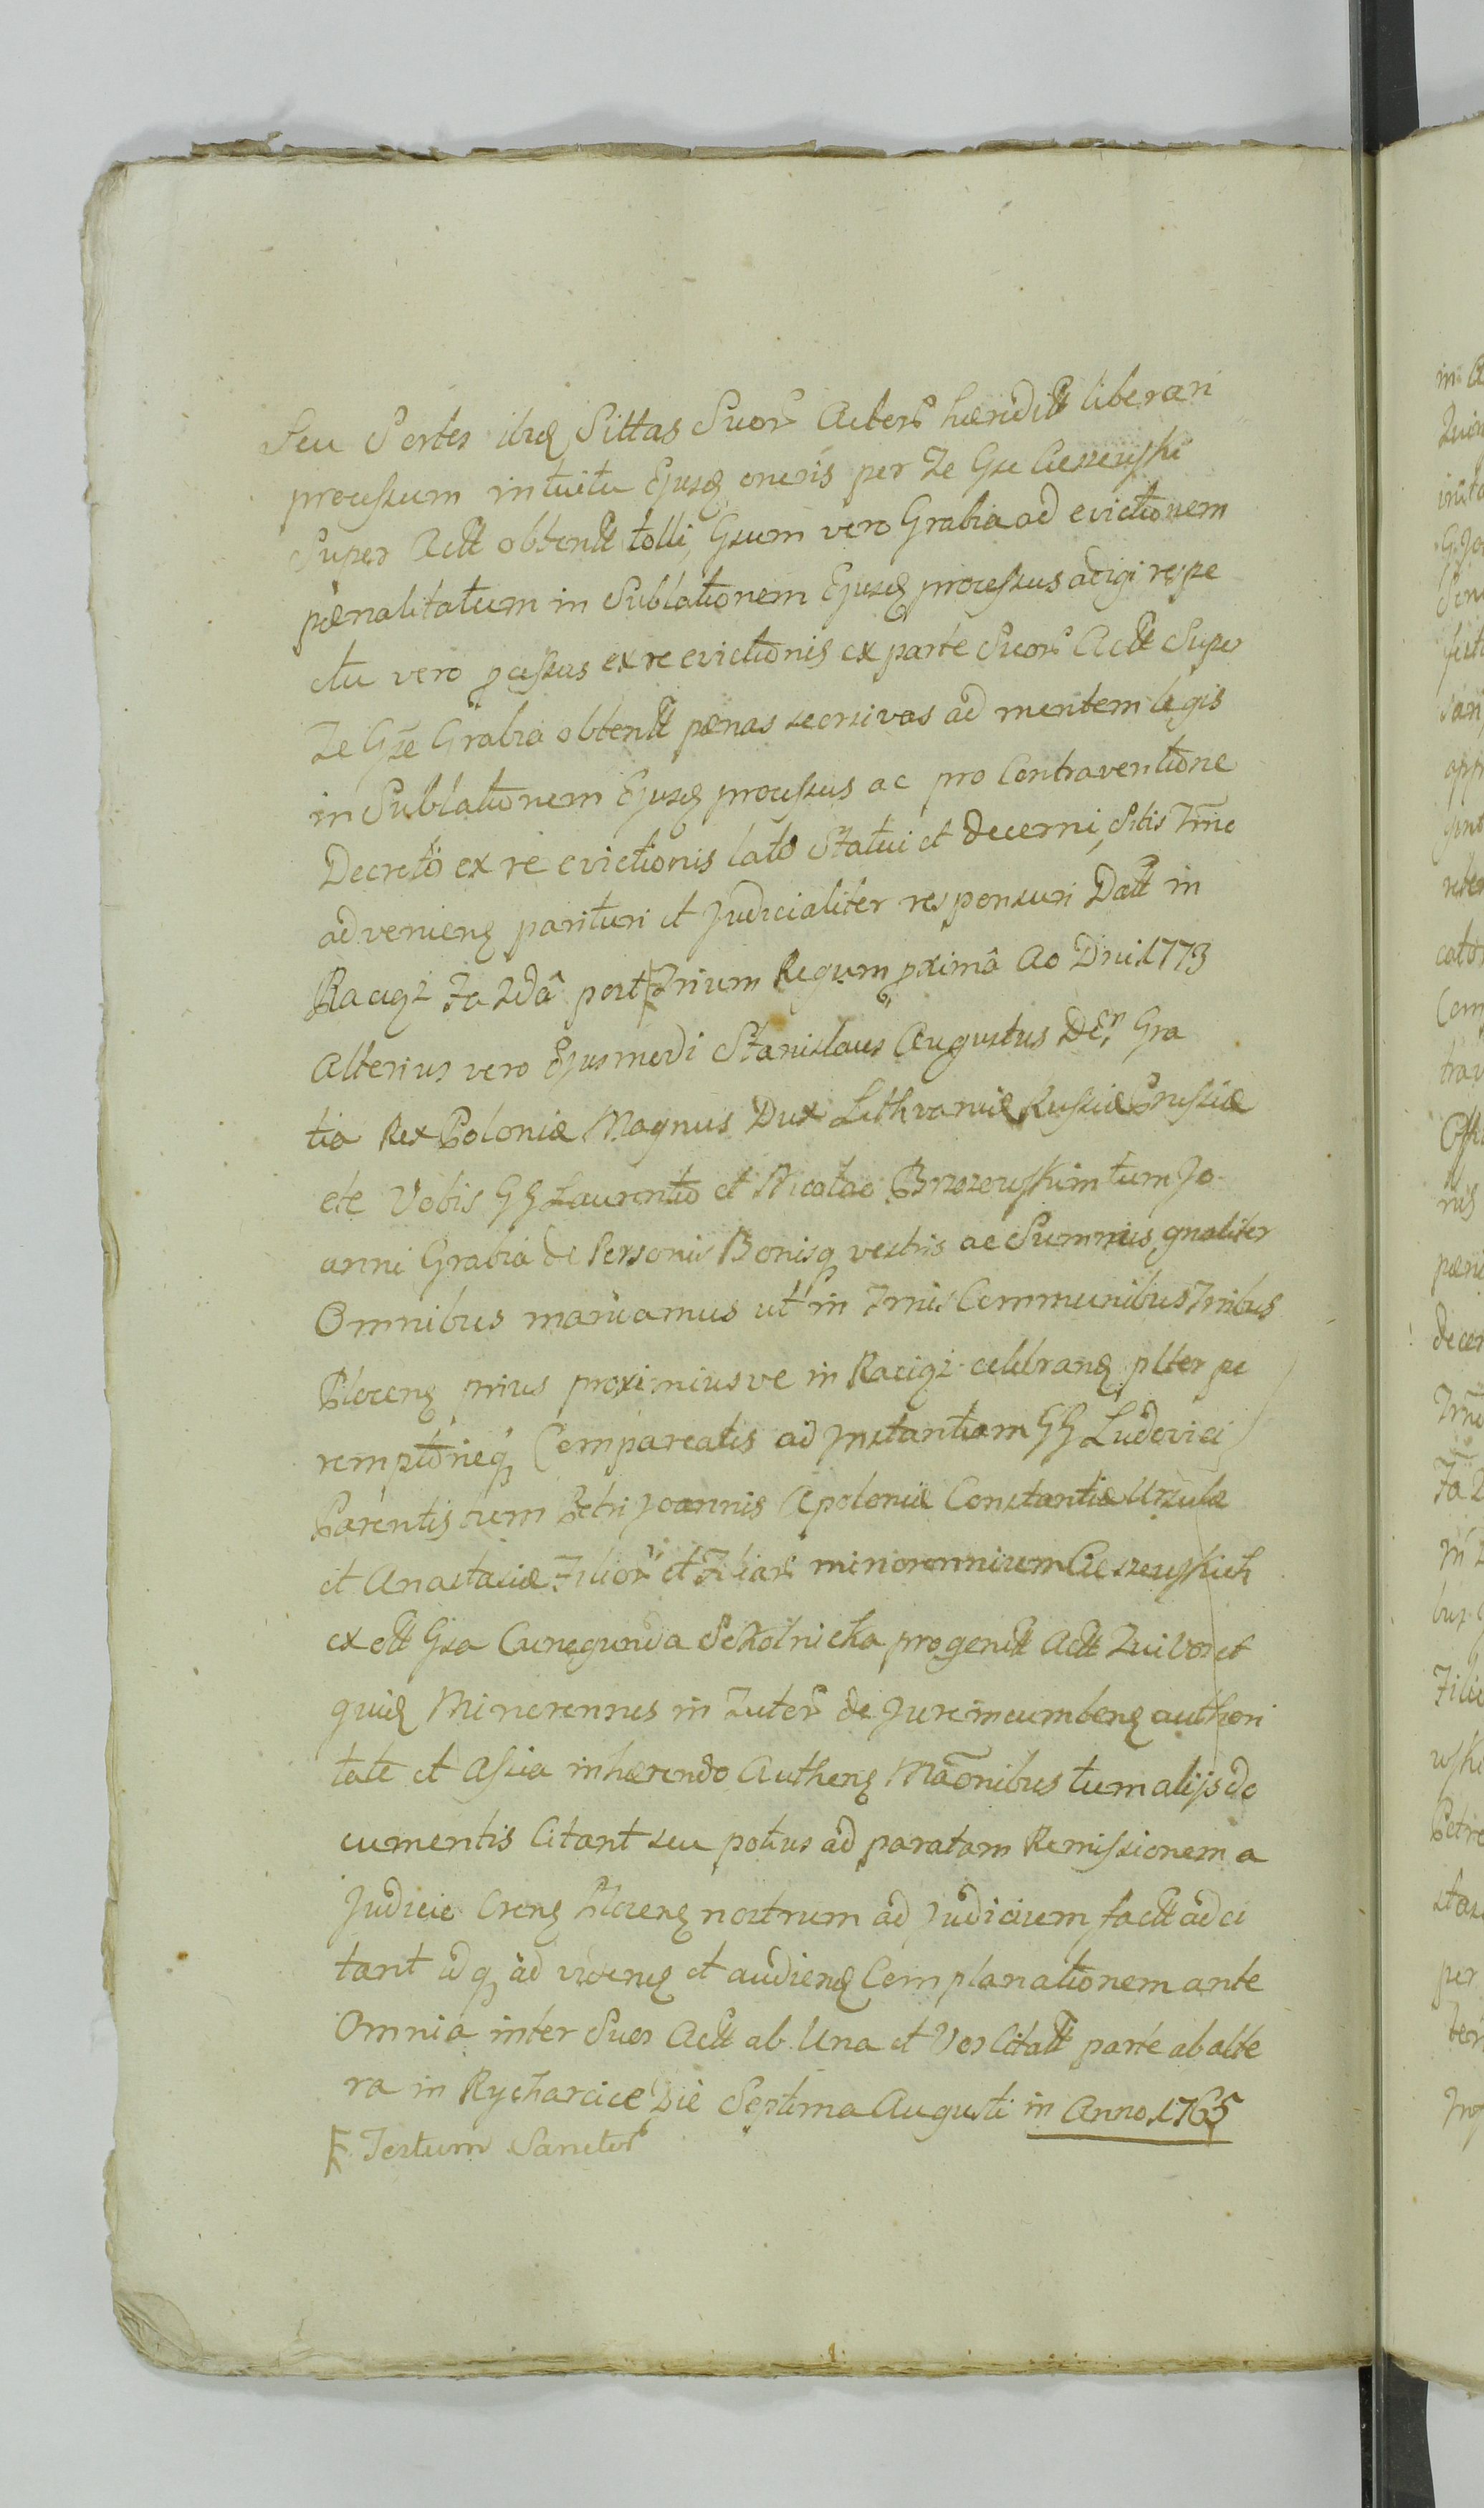 Seu Sortes ibid Sittas Suor Actor haeredit liberari
processum intuitu Ejusd oneris per Te Gse Cieszewski
Super Actt obtentt tolli, Gsum vero Grabia ad evictionem
paenalitatum in Sublationem Ejusd processus adigi respe
ctu vero pcessus ex re evictionis ex parte Suor Actt Super
Te Gse Grabia obtentt paenas secrsivas ad mentem legis
in Sublationem Ejusd processus ac pro Contraventione
Decreto ex re evictionis lato Statui et decerni, Sitis Tmno
ad veniend parituri et Judicialiter responsuri Datt in
Raciąż Fa 2da post Trium Regum pximâ Ao Dni 1773
Alterius vero Ejusmodi Stanislaus Augustus DEI Gra
tia Rex Poloniae Magnus Dux Lithvaniae Russiae Prussiae
etc Vobis GG Laurentio et Nicolao Brzozewskim tum Jo
anni Grabia de Personis Bonisq vestris ac Summis gnaliter
Omnibus mandamus ut in Tmis Communibus Tribus
Plocens prius proximiusve in Raciąż celebrand plter pe
remptorieq Compareatis ad Instantiam GG Ludovici
Parentis tum Petri Joannis Apoloniae Constantiae Urzulae
et Anastasiae Filior et Filiar minorennium Cieszewskich
ex ott Gsa Cunegunda Sokolnicka progenitt Actt Qui Vos et
quid Minorennes in Tutor de Jure incumbend authori
tate et assia inhaerendo Authend Maonibus tum alijs do
cumentis Citant seu potius ad paratam Remissionem a
Judicio Crens Plocens nostrum ad Judicium factt adci
tant idq ad videnq et audiend Complanationem ante
Omnia inter Suos Actt ab Una et Vos Citatt parte ab alte
ra in Rycharcice Die Septima Augusti in Anno 1765
Festum Sanctor
in